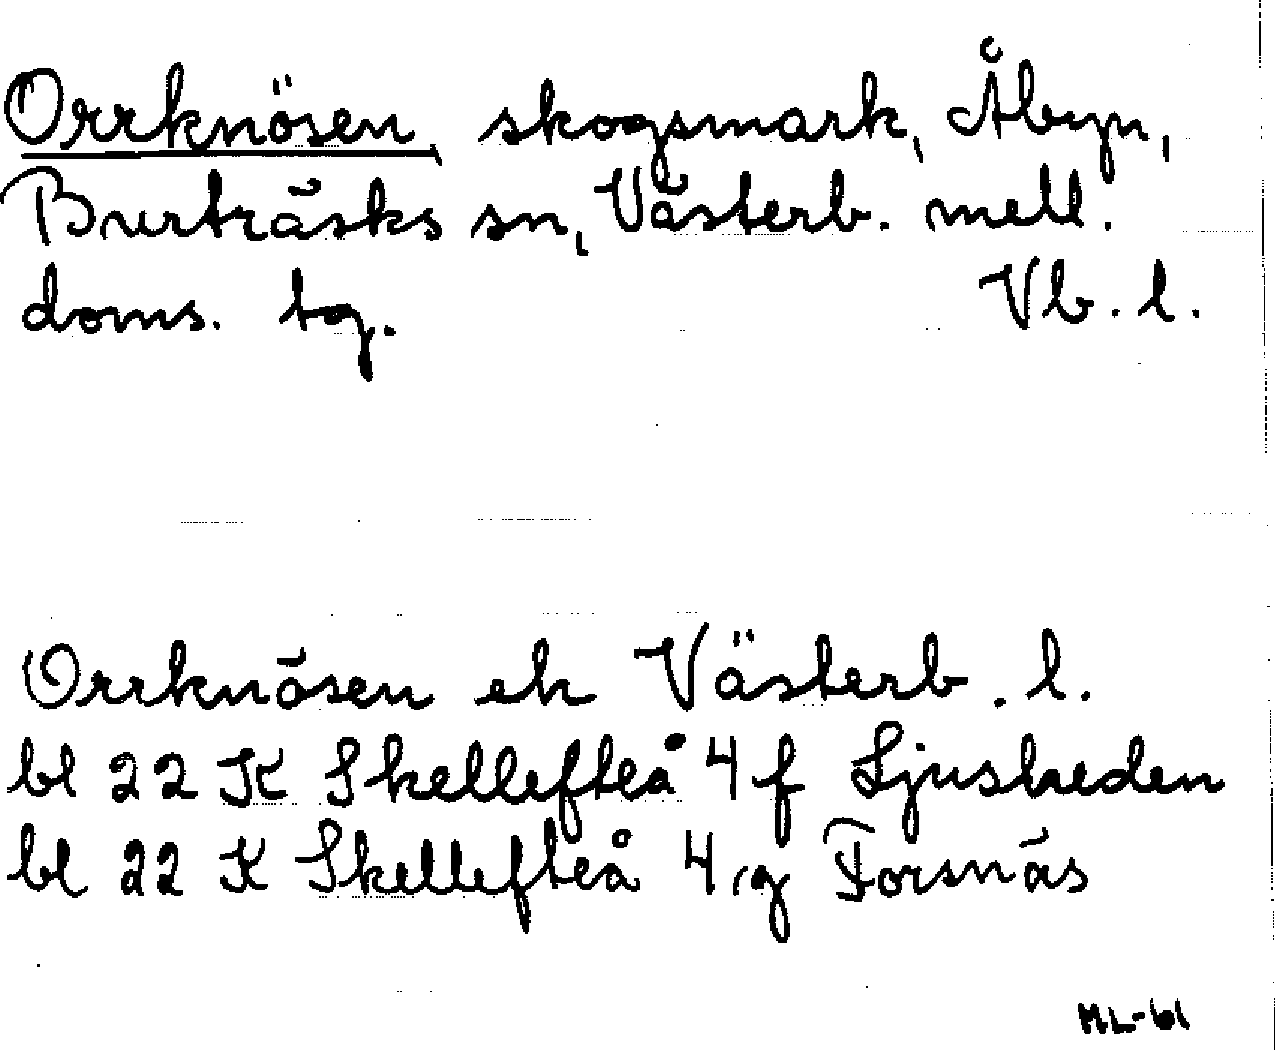 Orrknösen, skogsmark, Åbyn,
Burträsks sn, Västerb. mell.
doms. tg. Vb. l.
Orrknösen ek Västerb. l.
bl 22 K Skellefteå 4 f Ljusheden
bl 22 K Skellefteå 4 g Forsnäs
ML-61